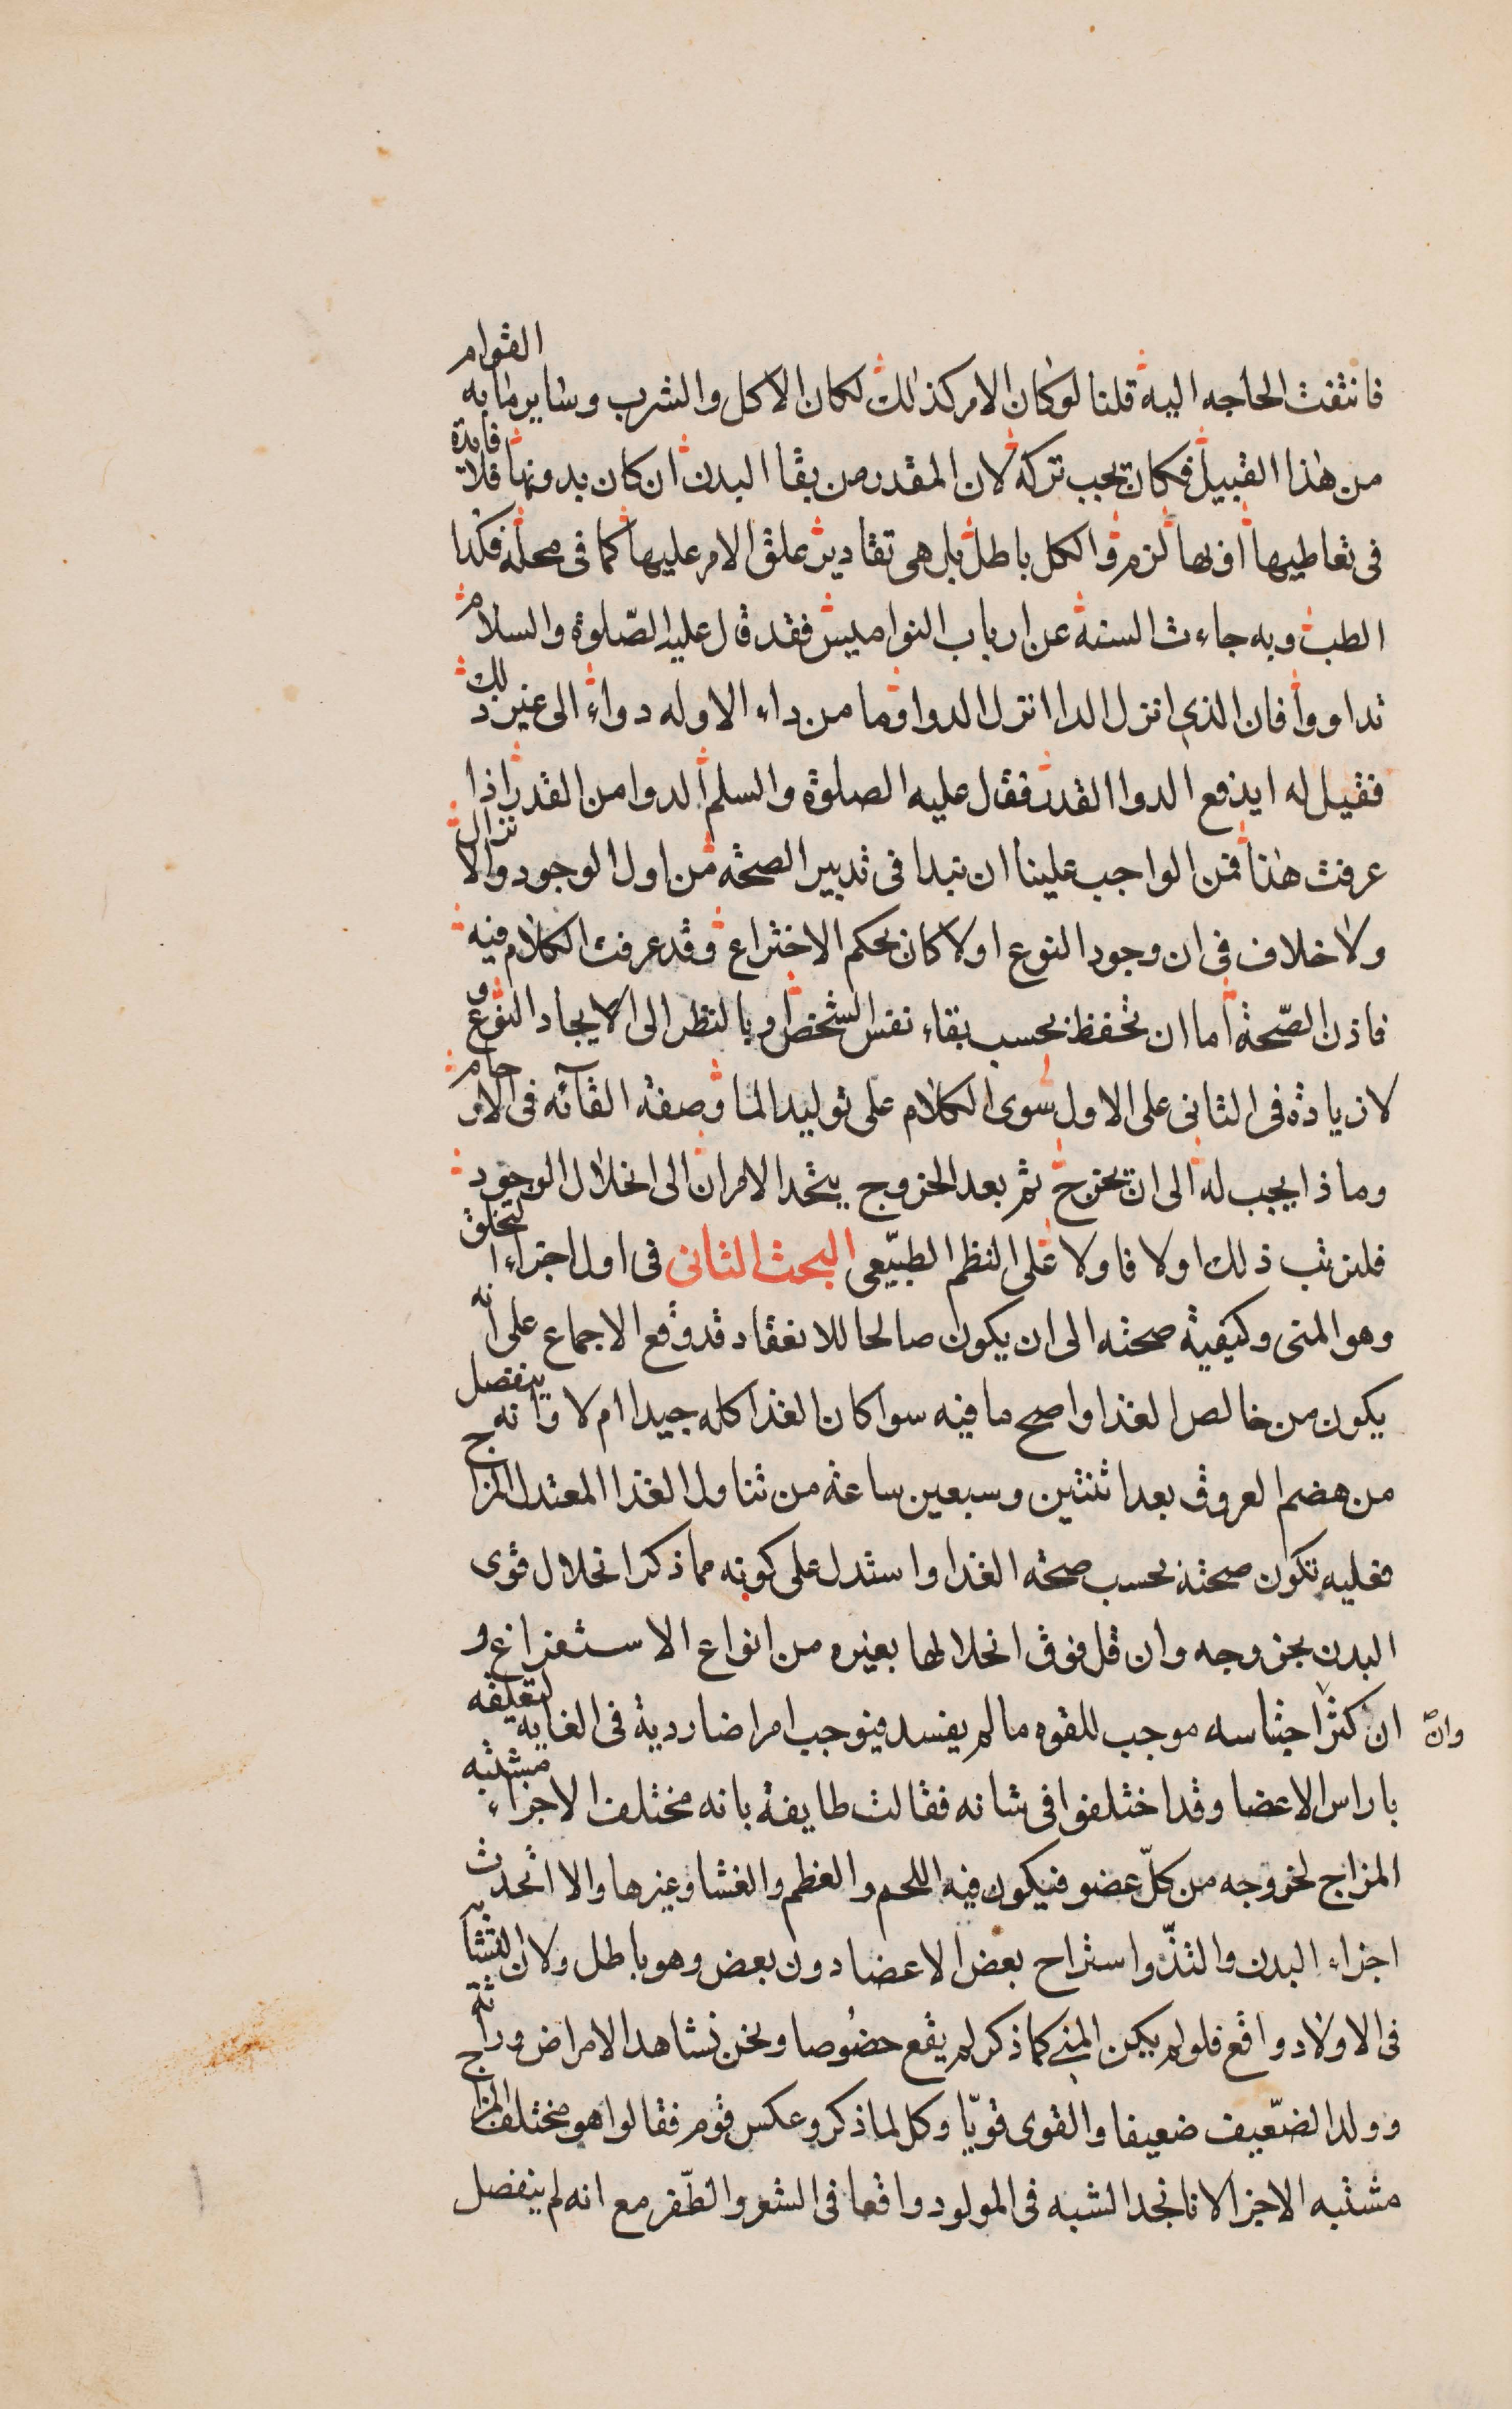 فانتفت الحاجه اليه قلنا لو كان الامر كذلك لكان الاكل والشرب وساير ما به القوام
من هذا القبيل فكان يجب تركه لان المقدر من بقا البدن ان كان بدونها فلا فايدة
فى تعاطيها او بها لزم والكل باطل بل هى تقادير علق الامر عليها كما فى محله فكذا
الطب وبه جاءت السنة عن ارباب النواميس فقد قال عليه الصّلوة والسلام
تداووا فان الذي انزل الدا انزل الدوا وما من داء الا وله دواء الى غير ذلك
فقيل له ايدفع الدوا القدر فقال عليه الصلوة والسلم الدوا من القدر اذا
عرفت هذا فمن الواجب علينا ان نبدا فى تدبير الصحة من اول الوجود والانزال
ولا خلاف فى ان وجود النوع اولا كان بحكم الاختراع وقد عرفت الكلام فيه
فاذن الصّحة اما ان تحفظ بحسب بقاء نفس الشخص او بالنظر الى الايجاد النوع و
لا زيادة فى الثانى على الاول سوى الكلام على توليد الما وصفة القآئه فى الارحام
وماذا يجب له الى ان يخرج ثم بعد الخروج يتحد الامران الى انحلال الوجود
فلنرتب ذلك اولا فاولا على النظم الطبيّعى البحث الثانى فى اول اجزاء التخلق
وهو المنى وكيفية صحته الى ان يكون صالحا للانعقاد قد وقع الاجماع على انه
يكون من خالص الغذا واصح ما فيه سوا كان الغذا كله جيدا ام لا وانه ينفصل
من هضم العروق بعد اثنتين وسبعين ساعة من تناول الغذا المعتدل المزاج
فعليه تكون صحته بحسب صحة الغذا واستدل على كونه مما ذكر انحلال قوى
البدن بخروجه وان قل فوق انحلالها بغيره من انواع الاستفراغ و
وانّ
ان كثر احتباسه موجب للقوه ما لم يفسد فيوجب امراضا ردية فى الغايه لتعلقه
باراس الاعضا وقد اختلفوا فى شانه فقالت طايفة بانه مختلف الاجزاء مشتبه
المزاج لخروجه من كلّ عضو فيكون فيه اللحم والعظم والغشا وغيرها والا اتحدت
اجزاء البدن والتذّ واستراح بعض الاعضا دون بعض وهو باطل ولان التشابه
فى الاولاد واقع فلو لم يكن المني كما ذكر لم يقع خصُوصا ونحن نشاهد الامراض وراثة
وولد الضّعيف ضعيفا والقوى قويّا وكل لما ذكر وعكس قوم فقالوا هو مختلف المزاج
مشتبه الاجزا لانا نجد الشبه فى المولود واقعا فى الشعر والظّفر مع انه لم ينفصل